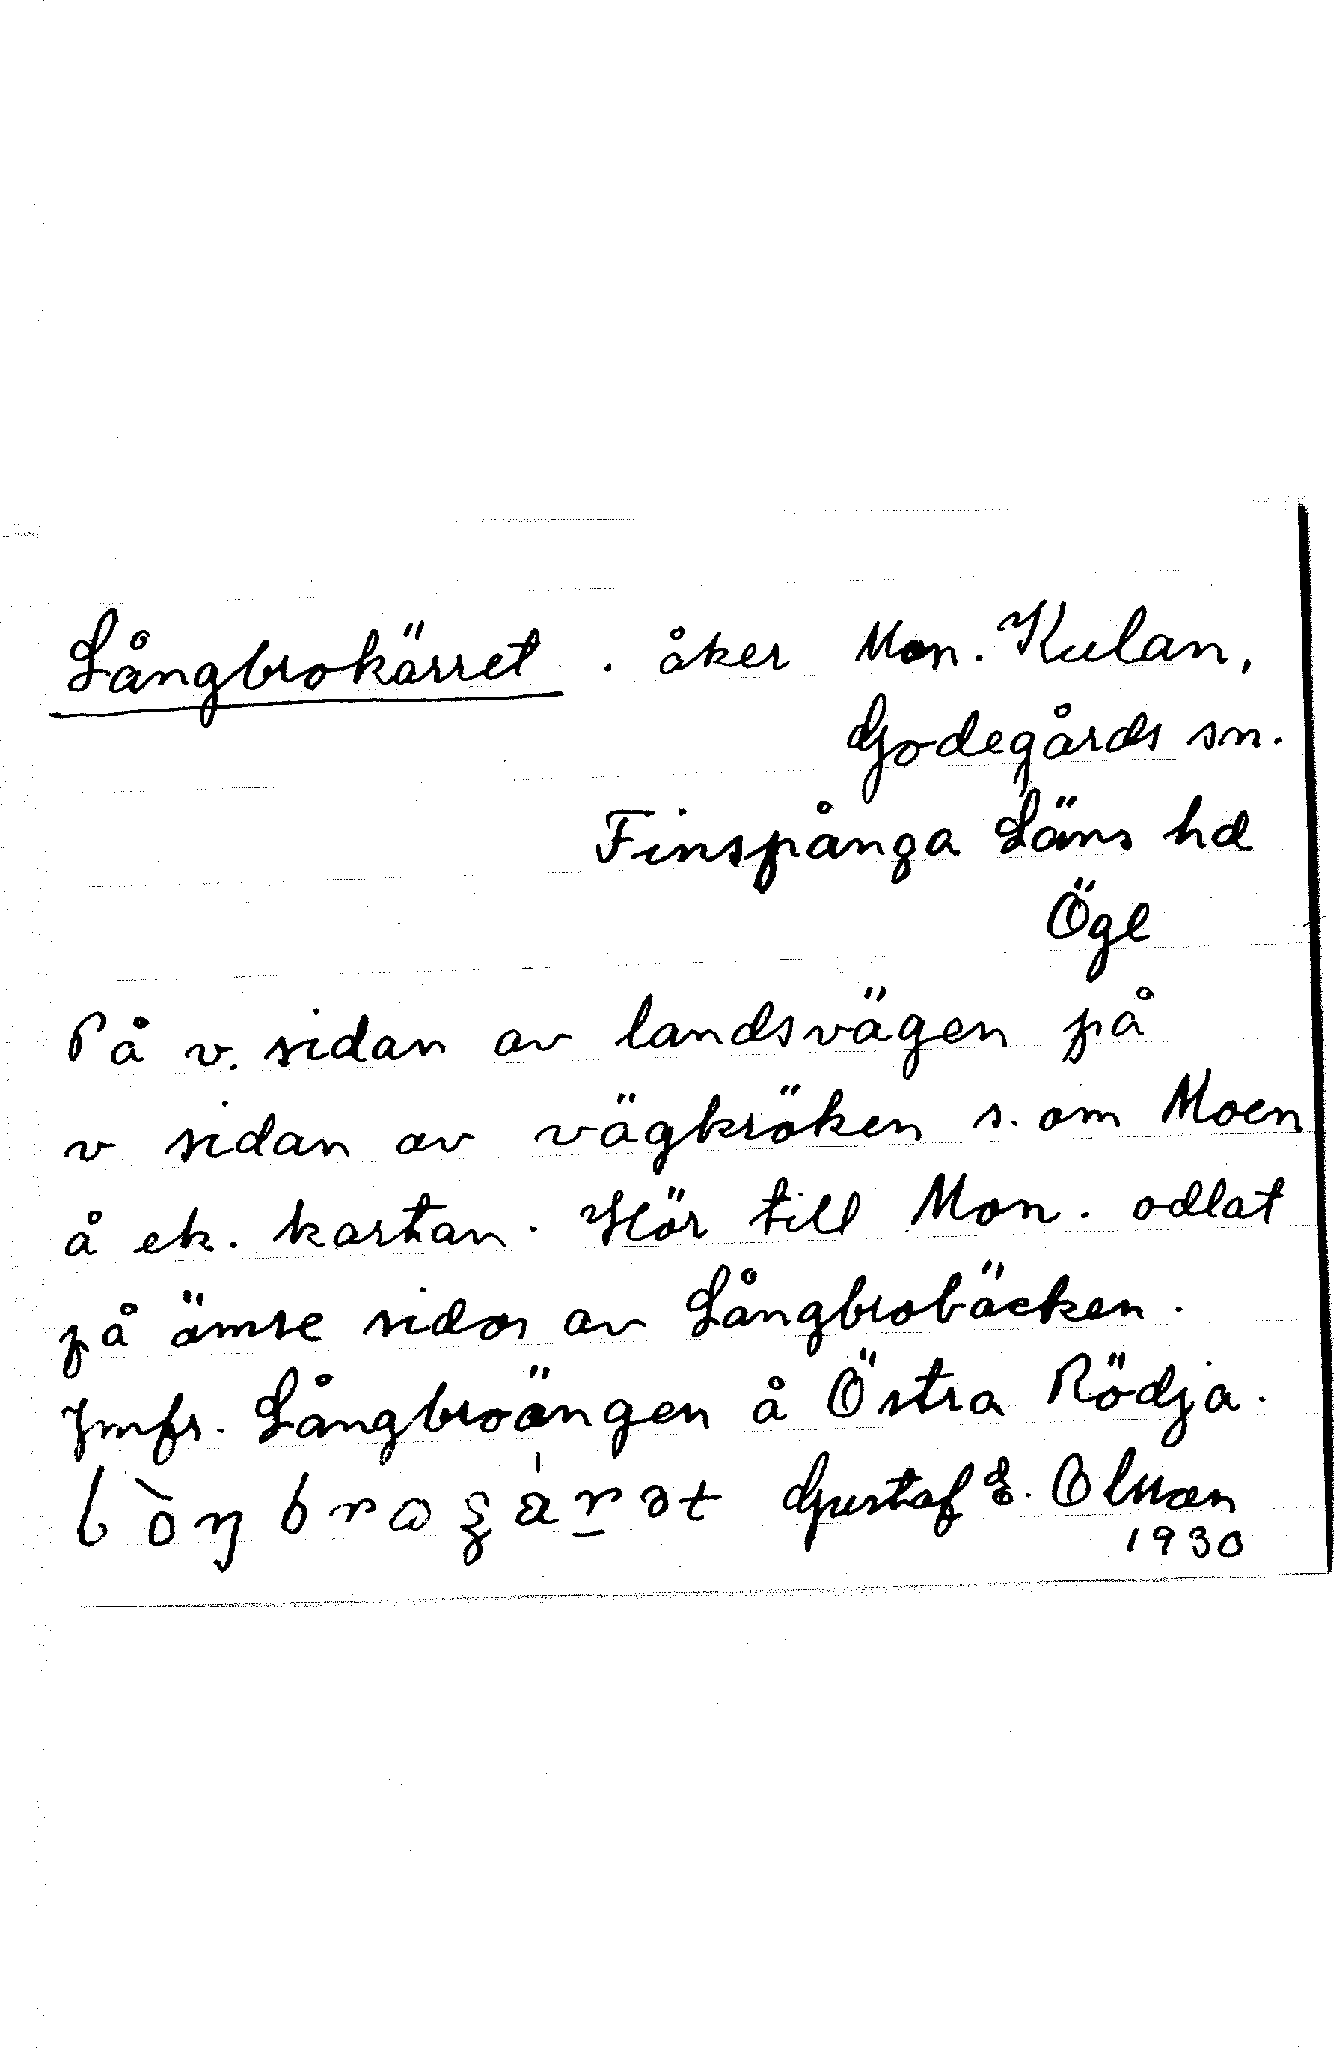 Långbrokärret . åker Mon. Kulan,
Godegårds sn.
Finspånga Läns hd
Ögl
På v. sidan av landsvägen på
v sidan av vägkröken s. om Moen
å ek. kartan. Hör till Mon. odlat
på ömse sidor av Långbrobäcken.
Jmfr. Långbroängen å Östra Rödja.
Gustaf E. Olsson
1930